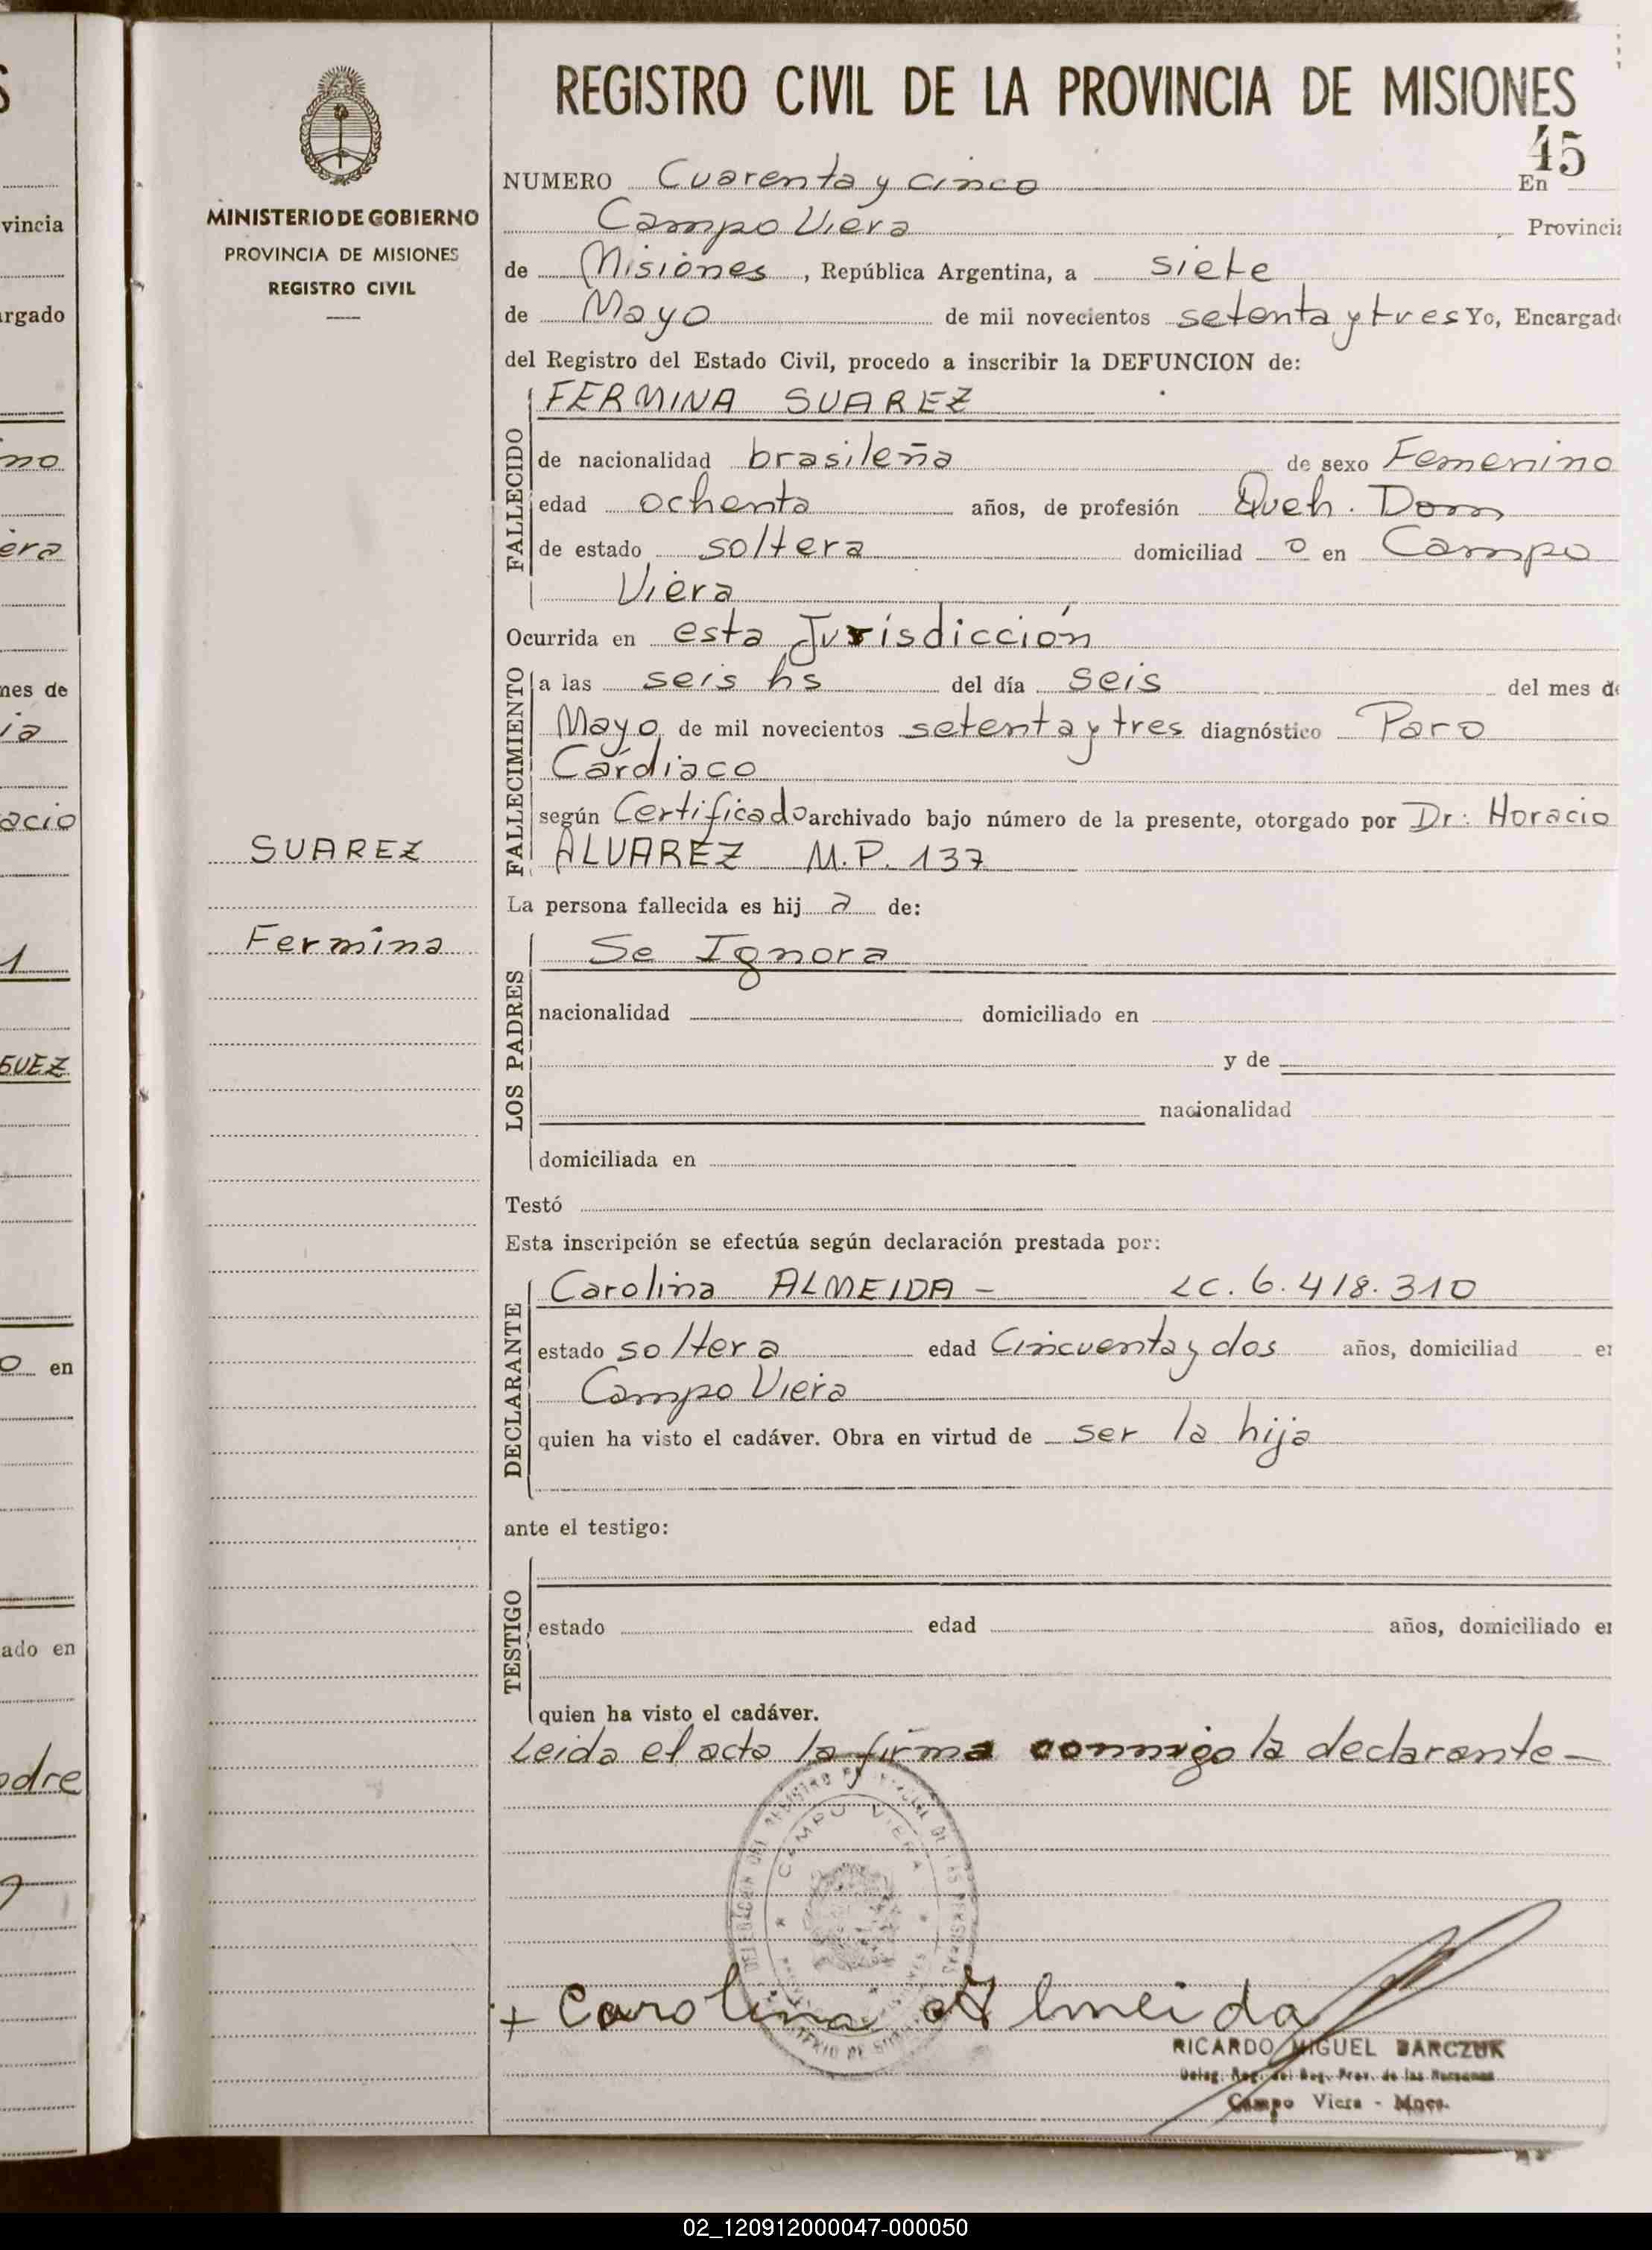 S
vincia
argado
mo
era
nes de
ia
acio
1
GUEZ
o en
ado en
adre
MINISTERIO DE GOBIERNO
PROVINCIA DE MISIONES
REGISTRO CIVIL
SUAREZ
Fermina
REGISTRO CIVIL DE LA PROVINCIA DE MISIONES
45
NUMERO Cuarenta y cinco En
Campo Viera, Provincia
de Misiones, República Argentina, a siete
de Mayo de mil novecientos setenta y tres Yo, Encargad
del Registro del Estado Civil, procedo a inscribir la DEFUNCION de:
FALLECIDO
FERMINA SUAREZ
de nacionalidad brasileña de sexo Femenino
edad ochenta años, de profesión Queh. Dom
de estado soltera domiciliad o en Campo
Viera
Ocurrida en esta Jurisdicción
FALLECIMIENTO
a las seis hs del día seis del mes de
Mayo de mil novecientos setenta y tres diagnóstico Paro
Cardiaco
según Certificado archivado bajo número de la presente, otorgado por Dr: Horacio
ALVAREZ M.P. 137
La persona fallecida es hij a de:
LOS PADRES
Se Ignora
nacionalidad domiciliado en
y de
nacionalidad
domiciliada en
Testó
Esta inscripción se efectúa según declaración prestada por:
DECLARANTE
Carolina ALMEIDA - LC. 6.418.310
estado soltera edad Cincuenta y dos años, domiciliad en
Campo Viera
quien ha visto el cadáver. Obra en virtud de ser la hija
ante el testigo:
TESTIGO
estado edad años, domiciliado en
quien ha visto el cadáver.
Leida el acta la firma conmigo la declarante-
CAMPO VIERA
+ Carolina Almeida
RICARDO MIGUEL BARCZUK
Deleg. Reg. del Reg. Prov. de las Personas
Campo Viera - Mnes.
02_120912000047-000050